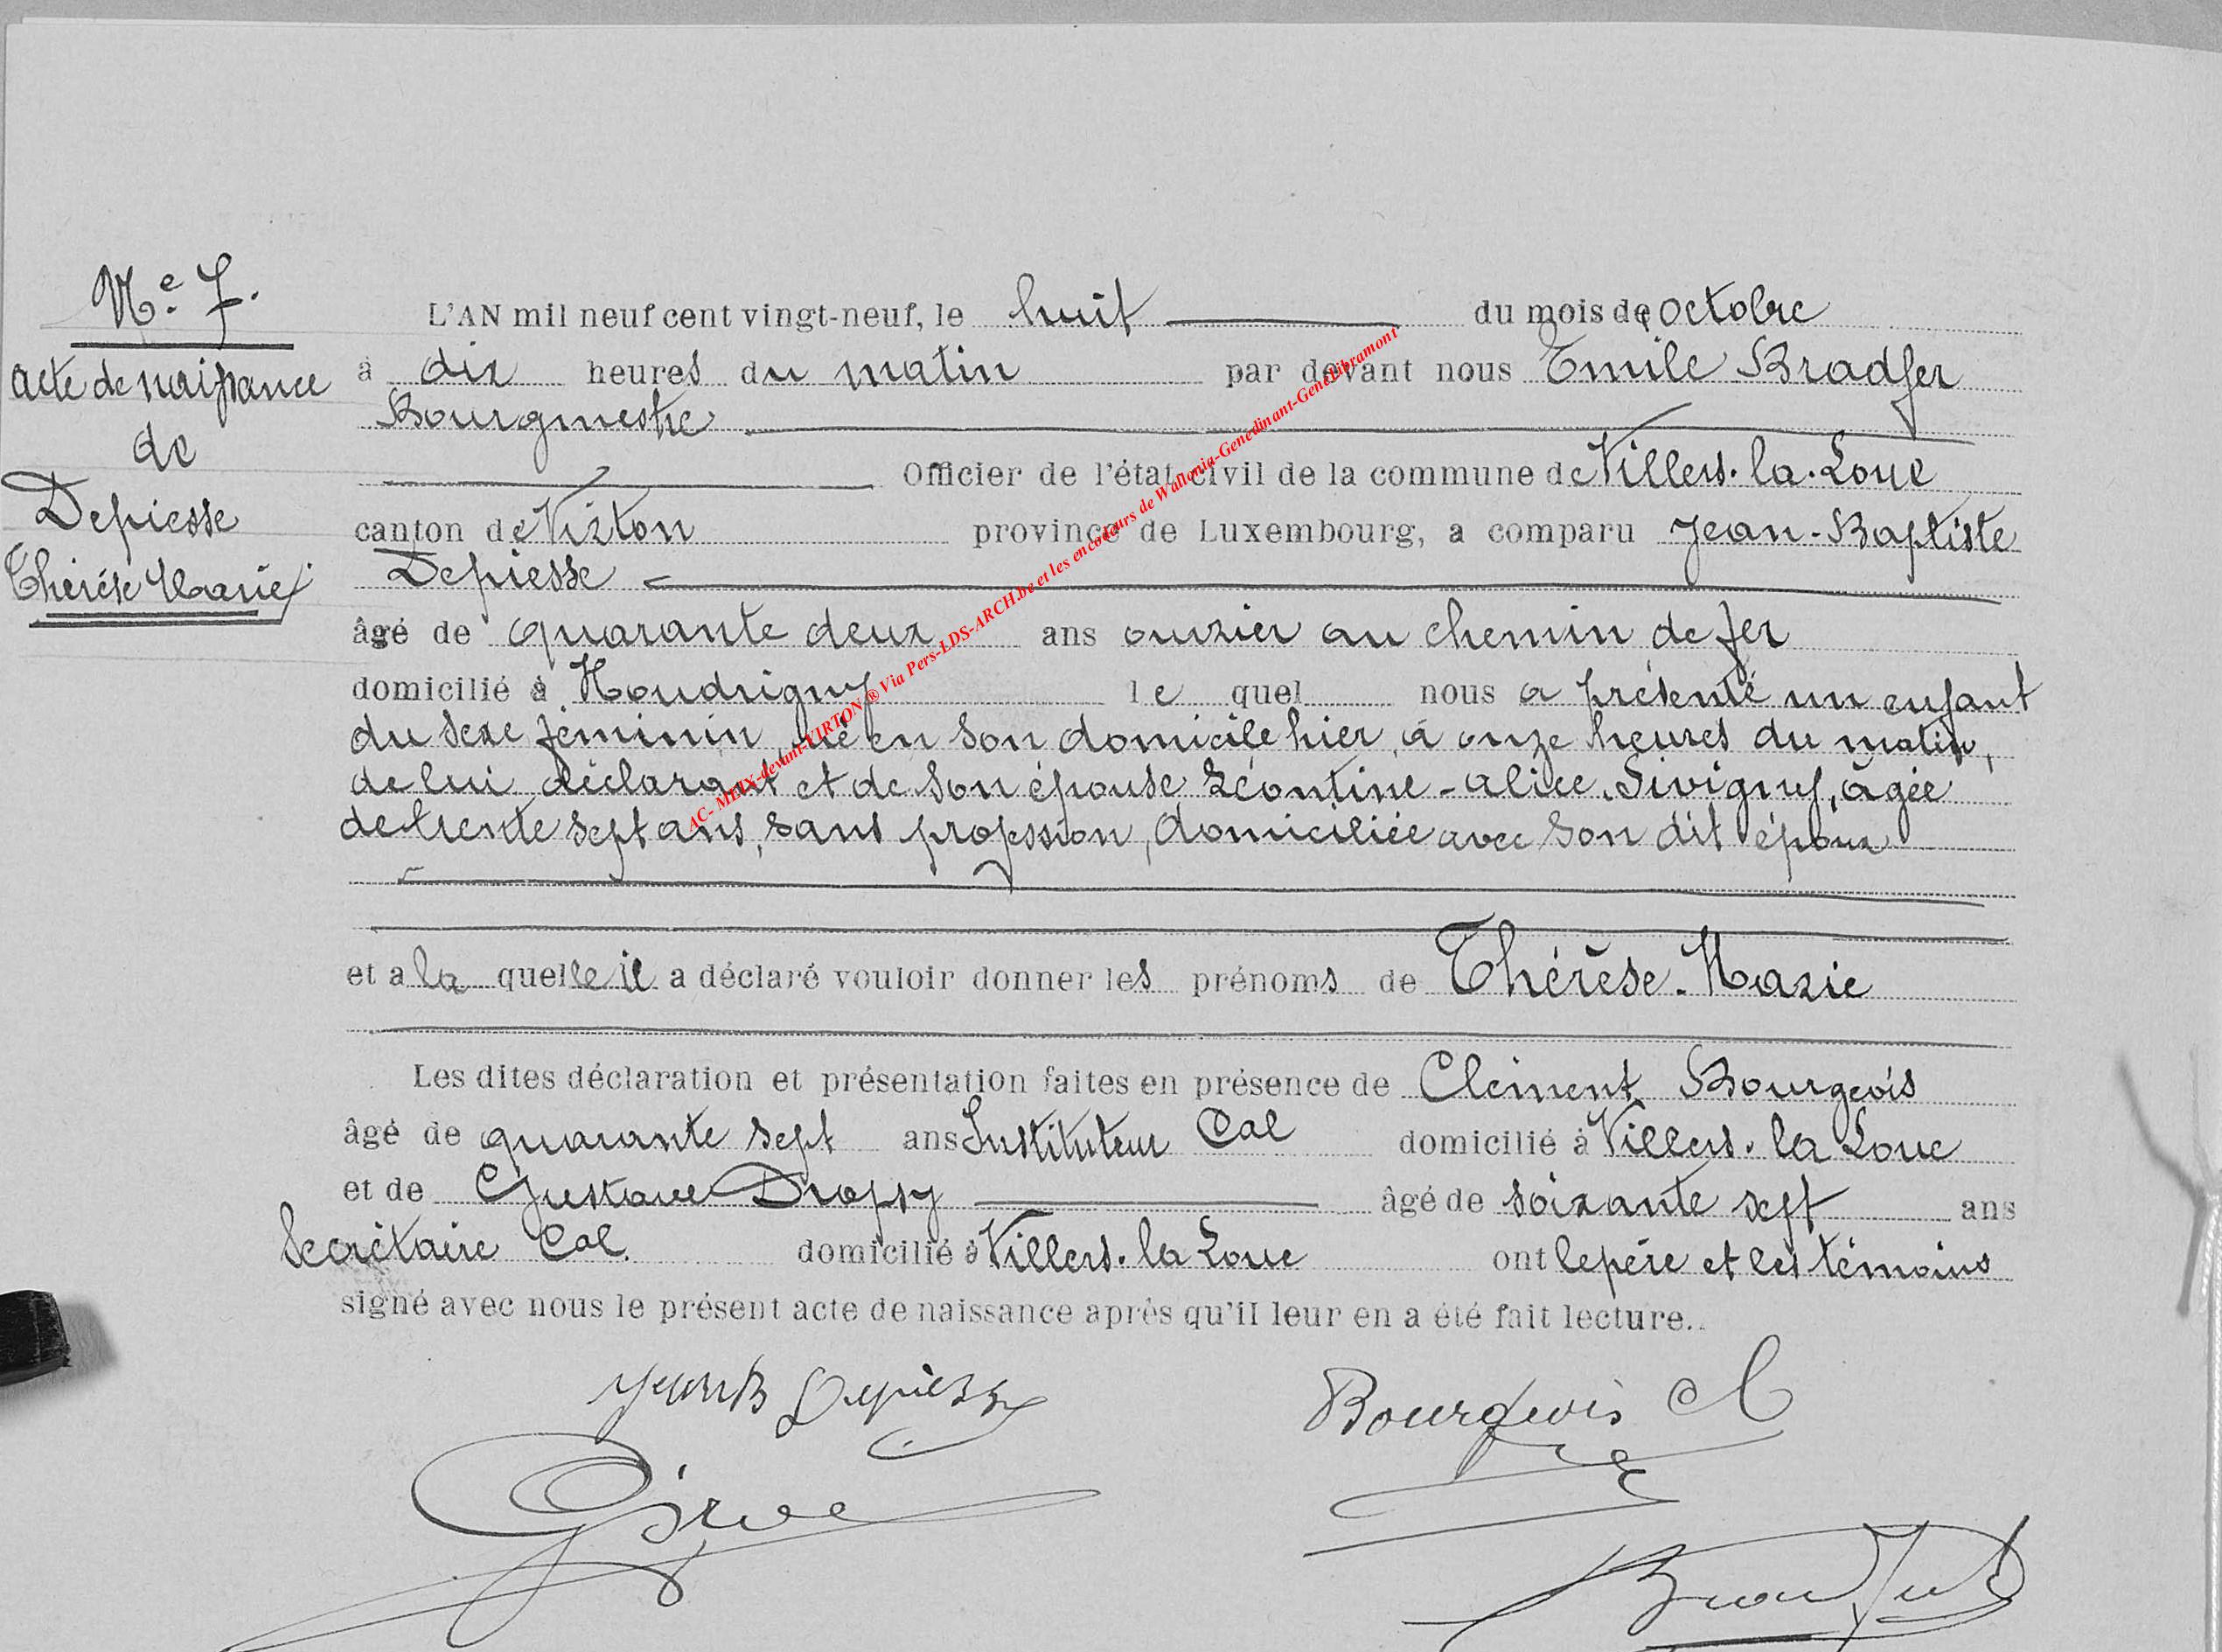 Nº 7.
Acte de naissance
de
Depiesse
Thérèse Marie
L'AN mil neuf cent vingt-neuf, le huit du mois de octobre
à dix heures du matin par devant nous Emile Bradfer
Bourgmestre
Officier de l'état civil de la commune de Villers-la-Loue
canton de Virton province de Luxembourg, a comparu Jean-Baptiste
Depiesse
âgé de quarante deux ans ouvrier au chemin de fer
domicilié à Houdrigny le quel nous a présenté un enfant
du sexe féminin, né en son domicile hier, à onze heures du matin,
de lui déclarant et de son épouse Léontine-Alice Sivigny, âgée
de trente sept ans, sans profession, domiciliée avec son dit époux
et a la quelle il a déclaré vouloir donner les prénoms de Thérèse-Marie
Les dites déclaration et présentation faites en présence de Clément Bourgeois
âgé de quarante sept ans Instituteur Cal domicilié à Villers-la Loue
et de Gustave Dropsy âgé de soixante sept ans
Secrétaire Cal. domicilié à Villers-la Loue ont le père et les témoins
signé avec nous le présent acte de naissance après qu'il leur en a été fait lecture..
Jean B Depiesse
Bourgeois Cl
Bradfer
AC- MEIX-devant-VIRTON ® Via Pers-LDS-ARCH.be et les encodeurs de Wallonia-Genedinant-Genelibramont